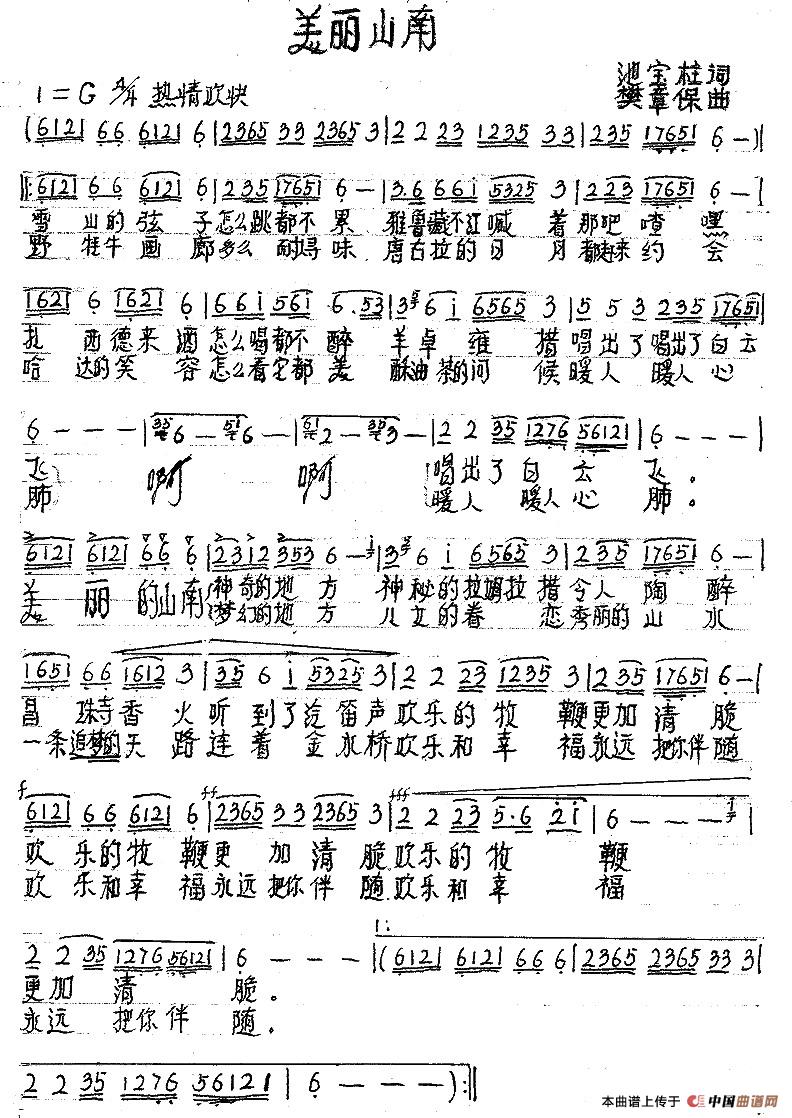 美丽山南
池宝柱词
1=G 4/4 热情欢快
樊章保曲
(6121 66 6121 6|2365 33 2365 3|2 2 23 1235 33|235 17651 6 -)||
||:6121 66 6121 6|235 17651 6 -|3.6 66i 5325 3|223 17651 6
雪山的弦子怎么跳都不累 雅鲁藏不江喊着那吧喳嘿
野牦牛画廊多么耐寻味 唐古拉的日月都赶来约会
1621 6 1621 6|66i 56i 6.53|3 6 i 6565 3|5 5 3 235 17651|
扎西德来酒怎么喝都不醉 羊卓雍措唱出了唱出了白云
哈达的笑容怎么看它都美 酥油茶的问候暖人暖人心
6 - - -|6 - 6 -|2 - 3 -|2 2 35 1276 56121|6 - - -|
飞 啊 啊 唱出了白云飞。
肺 暖人暖人心肺。
6121 6121 66 6|2312 353 6 -|3 6 i 6565 3|235 17651 6 -|
美丽的山南神奇的地方 神秘的拉姆拉措令人陶醉
梦幻的地方 儿女的眷恋秀丽的山水
1651 66 1612 3|35 6 i 5325 3|2 2 23 1235 3|235 17651 6 -|
昌珠寺香火听到了汽笛声欢乐的牧鞭更加清脆
一条追梦的天路连着金水桥欢乐和幸福永远把你伴随
f ff fff
6121 66 6121 6|2365 33 2365 3|2 2 23 5.6 2i|6 - - |
欢乐的牧鞭更加清脆欢乐的牧鞭
欢乐和幸福永远把你伴随欢乐和幸福
1:
2 2 35 1276 56121|6 - - -|(6121 6121 66 6|2365 2365 33 3|
更加清脆。
永远把你伴随。
2 2 35 1276 56121|6 - - -):||
本曲谱上传于 中国曲谱网